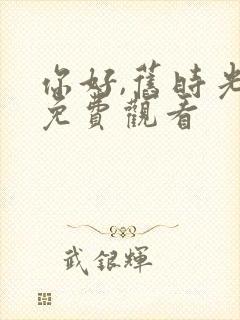 你好,舊時光
免費觀看
武銀輝